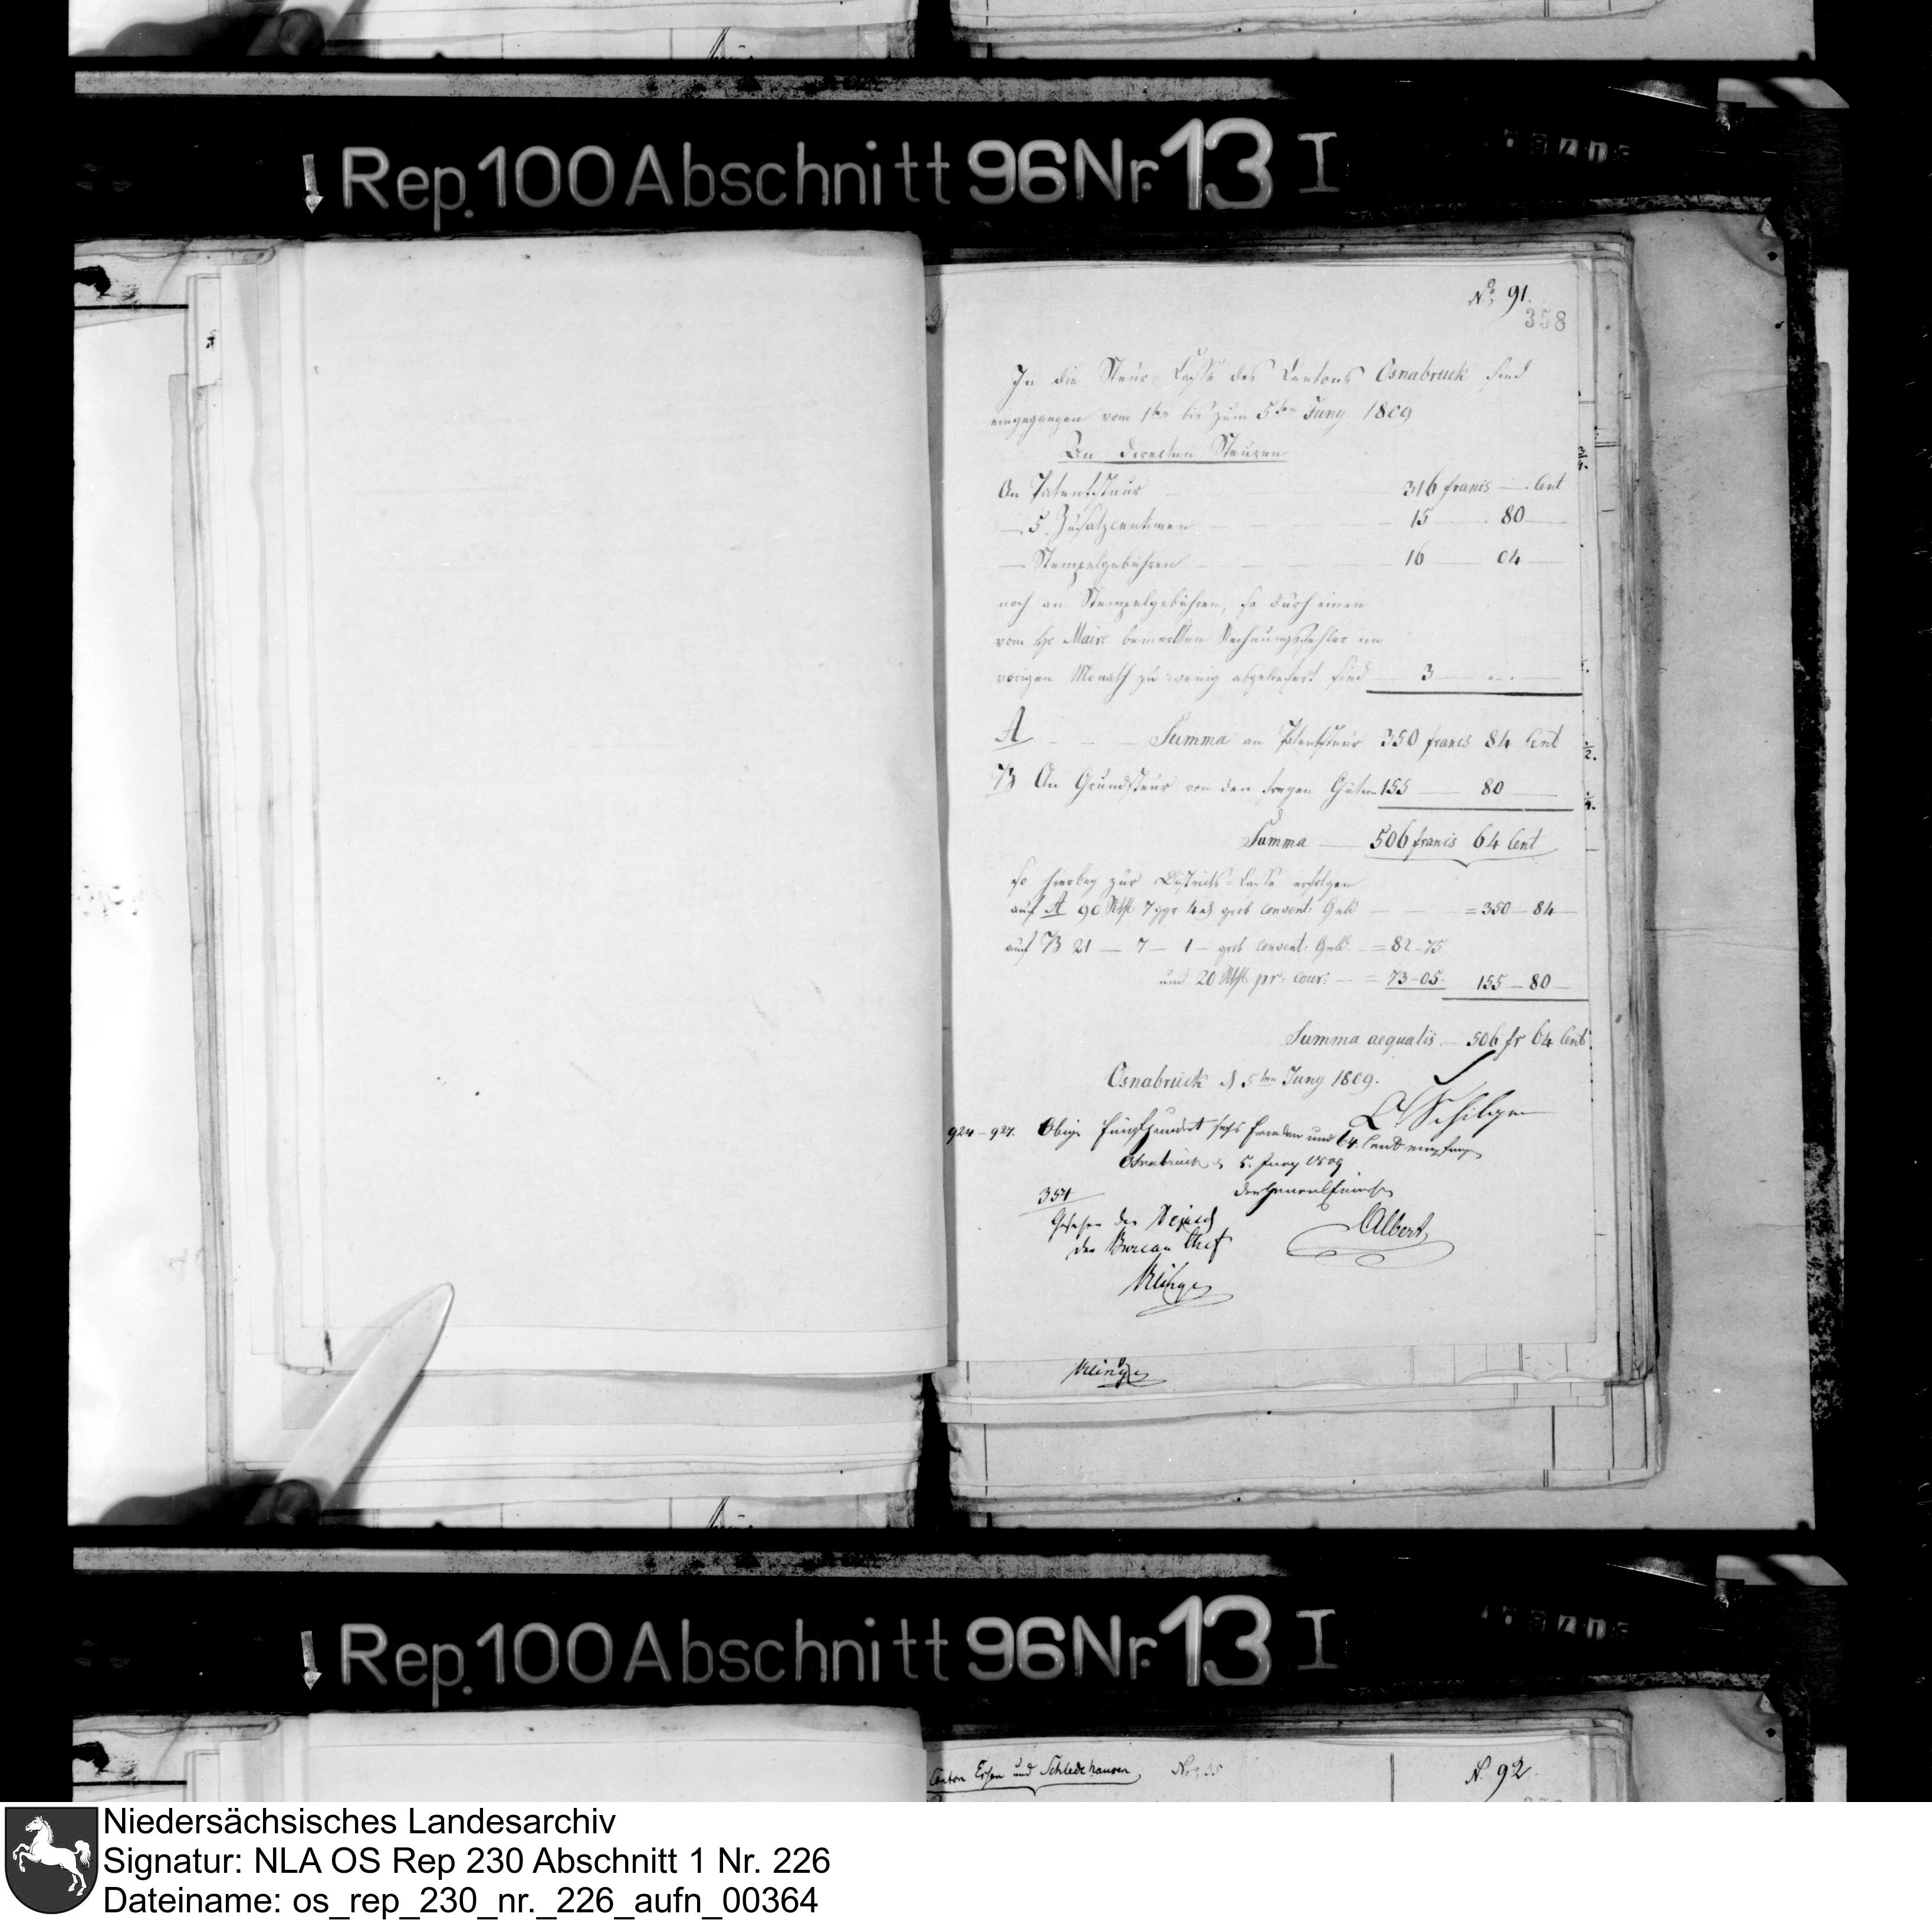 Rep. 100 Abschnitt 96 Nr. 13 I
No 91.
358
In die Steur-Casse des Cantons Osnabruck sind
eingegangen vom 1ten bis zum 5ten Juny 1809
An directen Steuren
An Patentsteur 316 francs — Cent
— 5 Zusatzcentimen 15 — 80 —
— Stempelgebühren 16 — 04 —
noch an Stempelgebühren, so durch einen
vom Hr Maire bemerkten Rechnungsfehler im
vorigen Monath zu wenig abgeliefert sind 3 —
A Summa an Patentsteur 350 francs 84 Cent
B An Grundsteur von den freyen Güter 155 — 80 —
Summa — 506 francs 64 Cent
so hierbey zur Districts-Casse erfolgen
auf A 90 Rthl 7 ggr 4 d grob Convent: Geld = 350 — 84 —
auf B 21 — 7 — 1 — grob Convent: Geld = 82 — 75
und 20 Rthl pr: Cour: — = 73 — 05. 155 — 80 —
Summa aequalis — 506 fr 64 Cent
Osnabrück d 5ten Juny 1809.
Schilgen
924 — 927. Obige fünfhundert sechs Franken und 64. Cent empfangen
Osnabrück d 5. Juny 1809
351
der General Einnehmer
Gesehen der
der Bureau Chef
Albert
Klinge
Klinge
Rep. 100 Abschnitt 96 Nr. 13 I
Canton Essen und Schledehausen,
N. 92.
Niedersächsisches Landesarchiv
Signatur: NLA OS Rep 230 Abschnitt 1 Nr. 226
Dateiname: os_rep_230_nr._226_aufn_00364